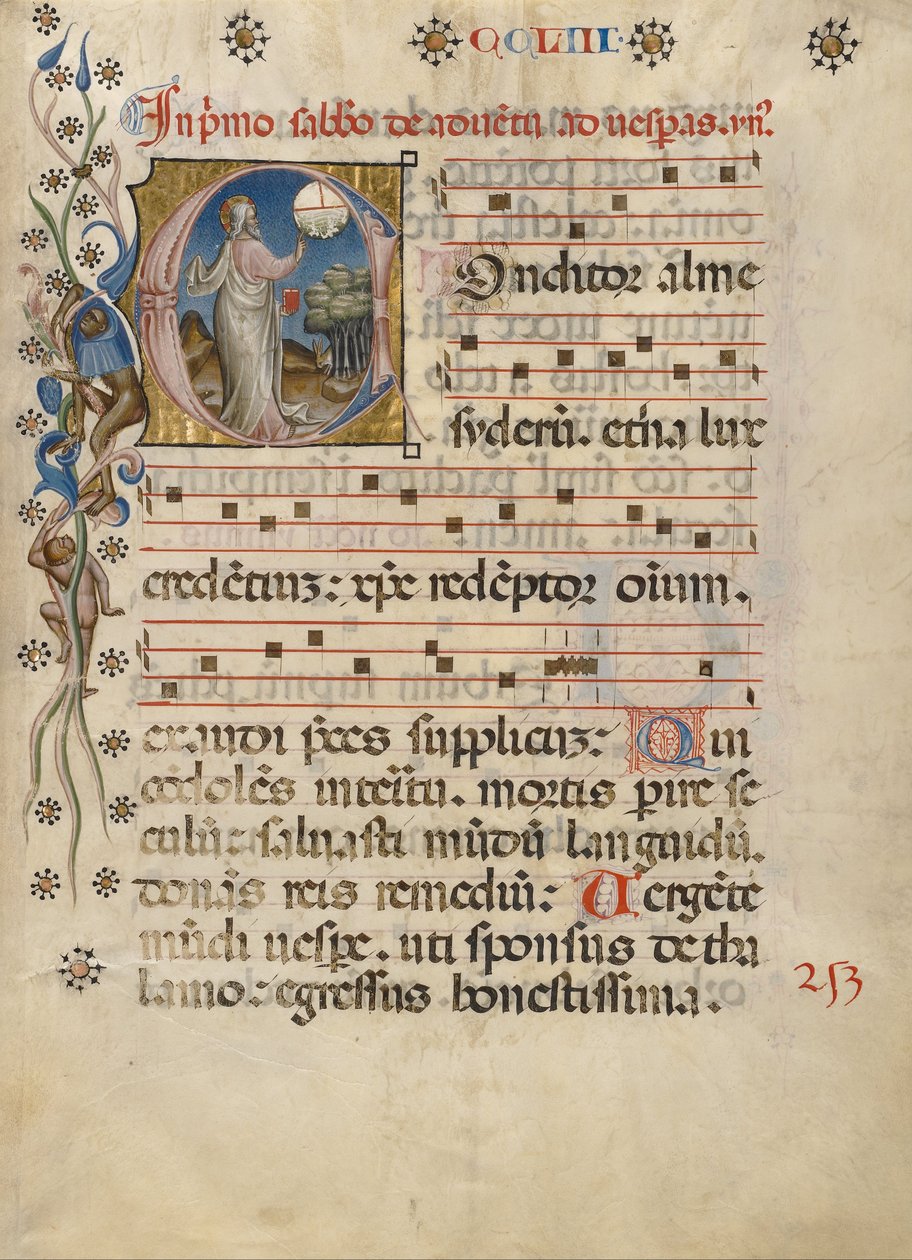 CCLIII
In p̄mo sabb̄o de aduētu ad uesp̱as. yn̄.
Onditor alme
syderū. et̄na lux
credētiuȝ: xp̄e redēptor oīum.
exaudi p̄ces supplicuȝ: Qui
cōdolēs inteītu. mortis p̱ire se
culū: saluasti mūdū languidū.
donās reis remediū: Uergēte
mūdi uesp̱e. uti sponsus de tha
lamo: egressus honestissima.
253